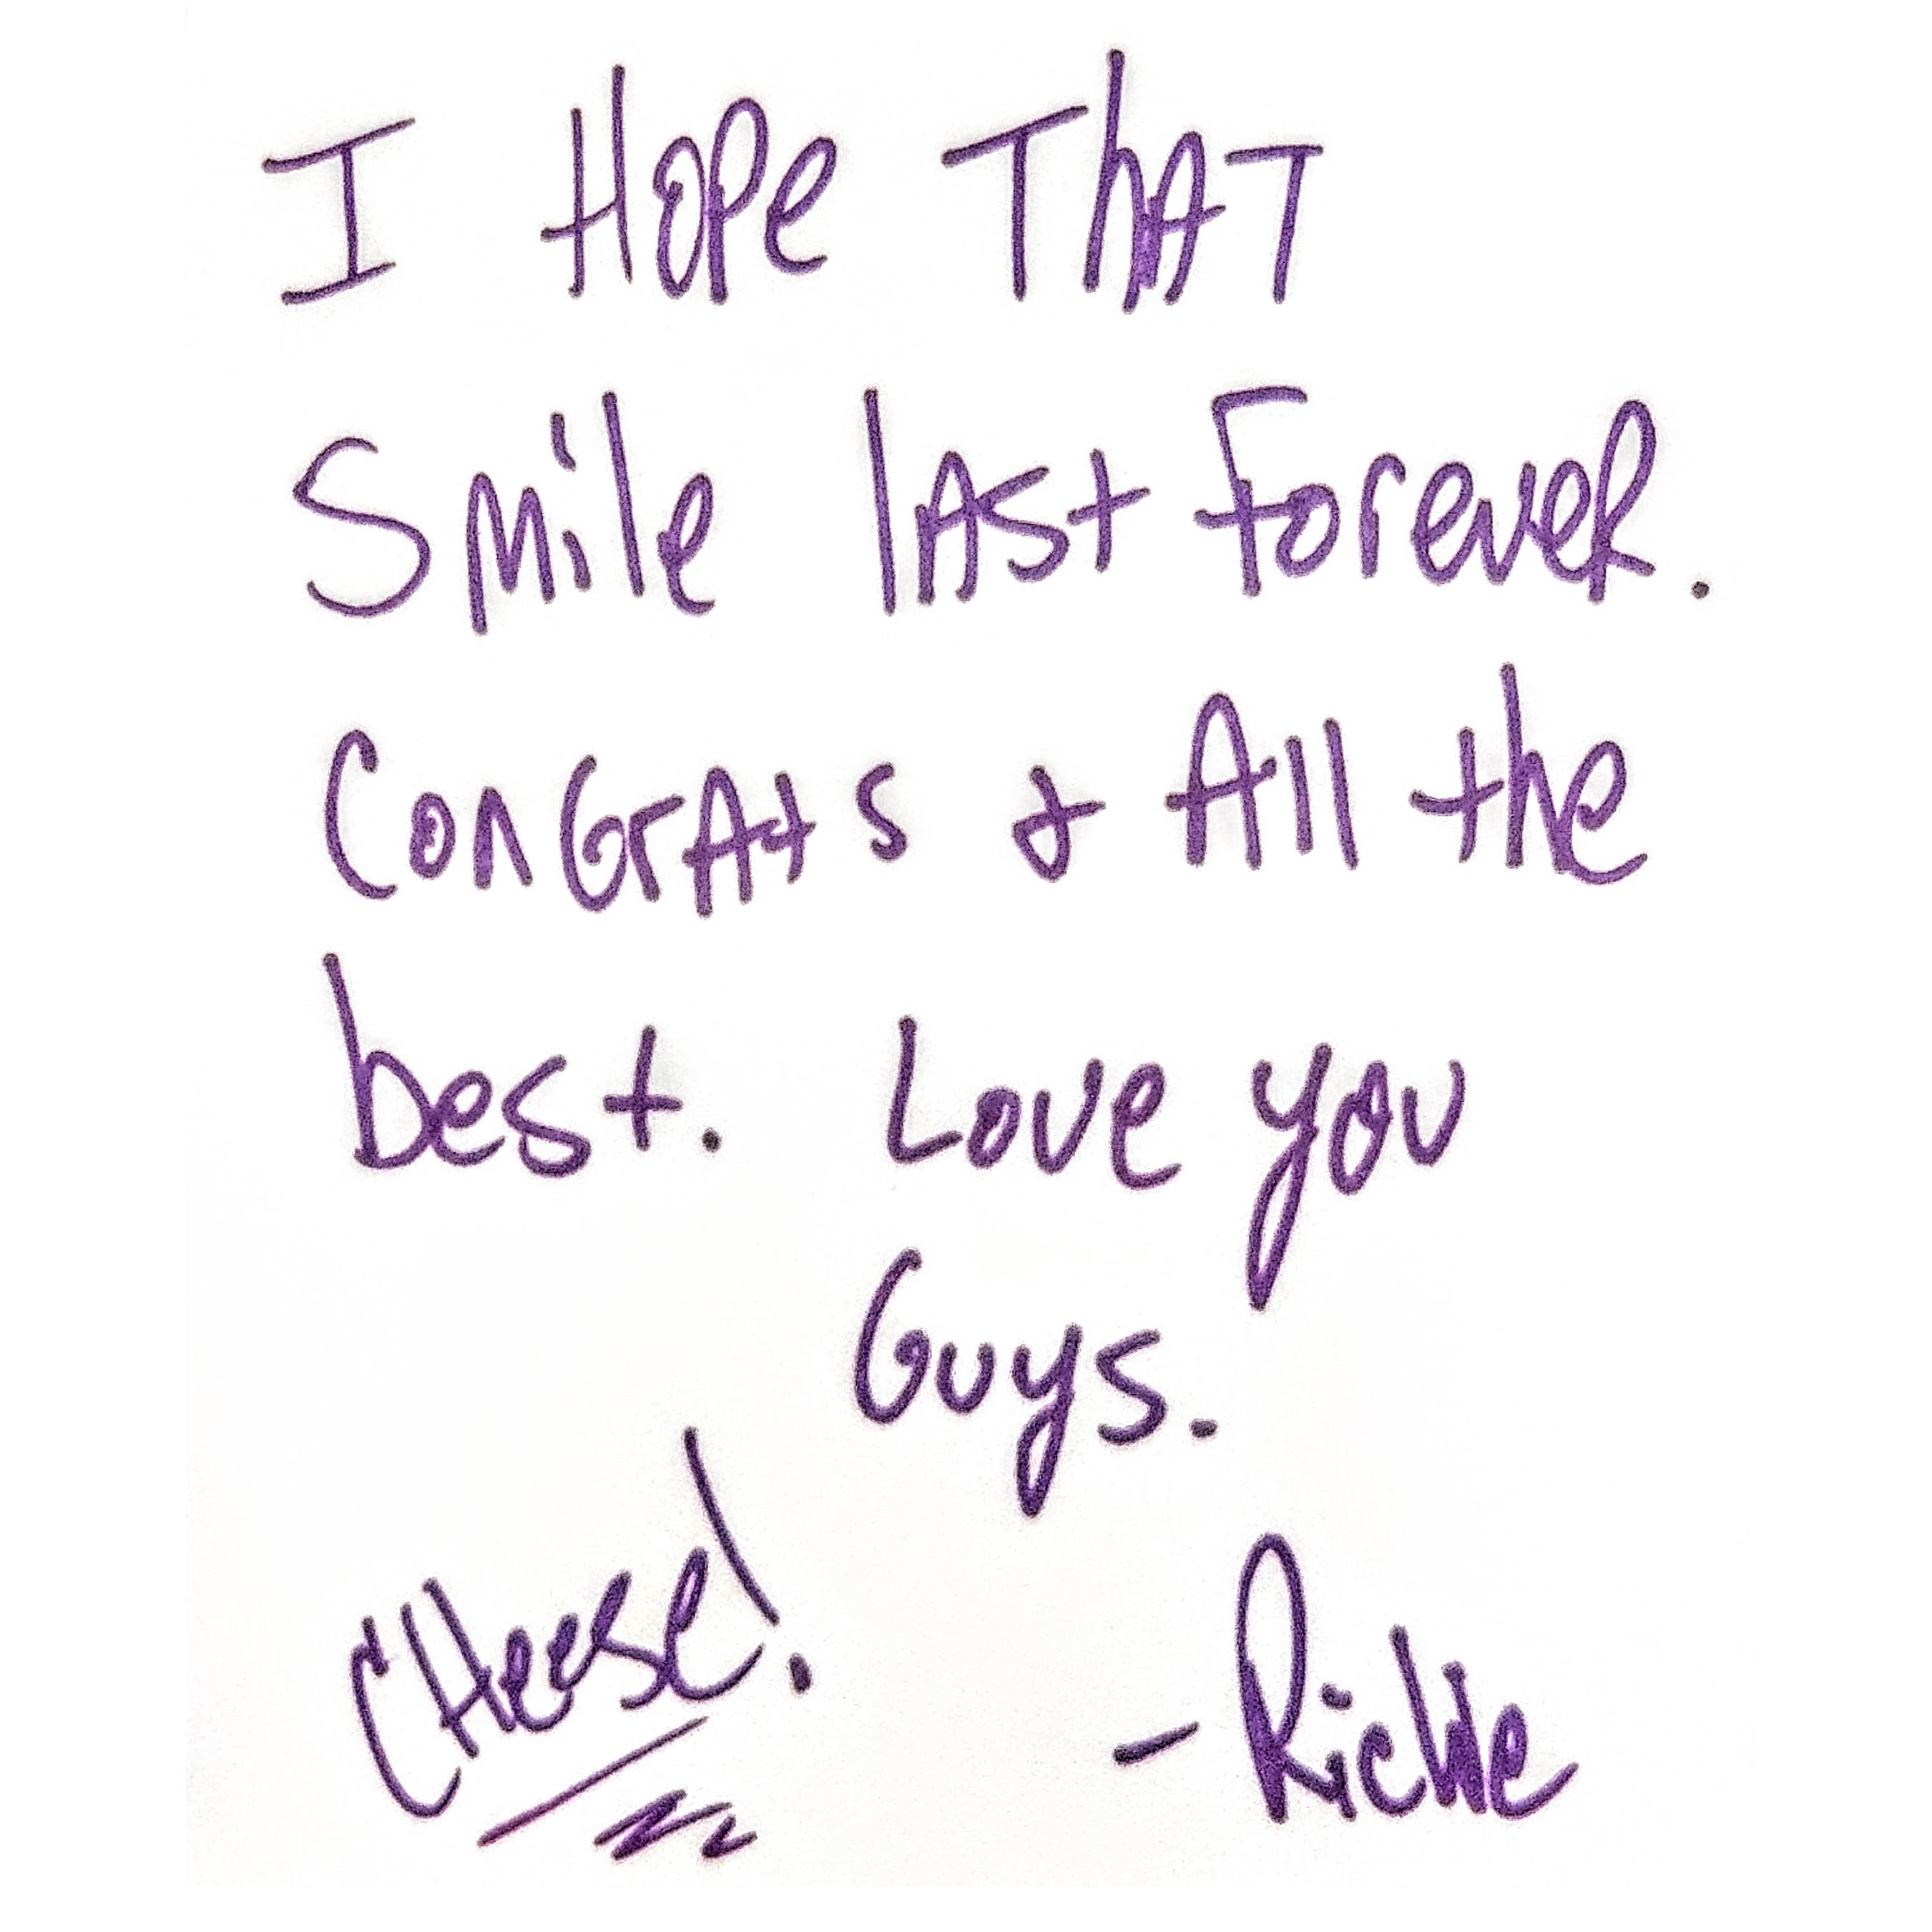 I HOPe ThAT
Smile lASt Forever.
ConGrAts & All the
best. Love you
Guys.
CHeese!
- Richie